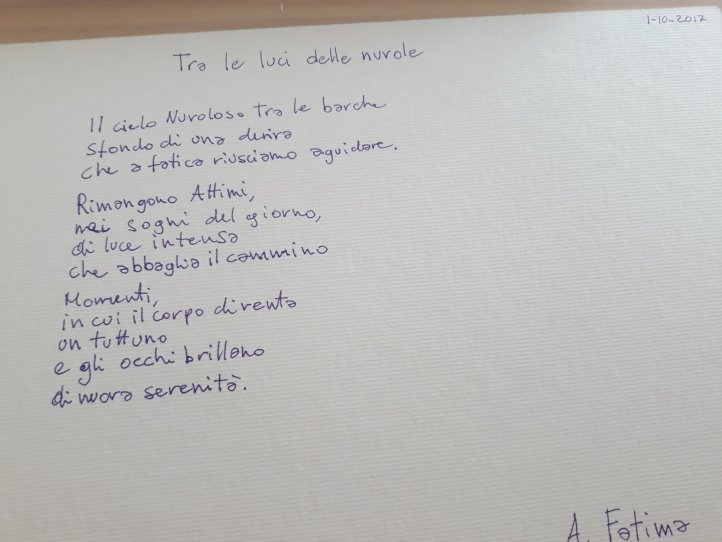 1-10-2017
Tra le luci delle nuvole
Il cielo Nuvoloso tra le barche
sfondo di una deriva
che a fatica riusciamo a guidare.
Rimangono Attimi,
nei sogni del giorno,
di luce intensa
che abbaglia il cammino
Momenti,
in cui il corpo diventa
un tuttuno
e gli occhi brillano
di nuova serenità.
A. Fatima